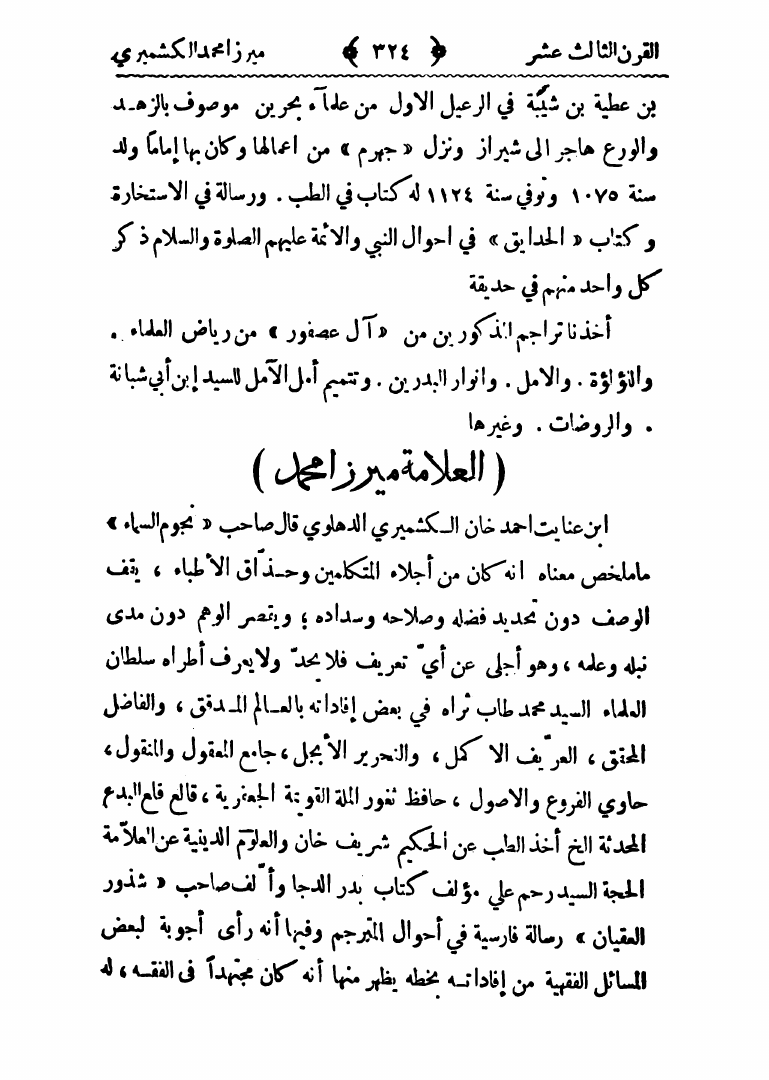 القرن الثالث عشر ﴿ ٣٢٤ ﴾ ميرزا محمد الكشميري
بن عطية بن شيبة في الرعيل الاول من علمآء بحرين موصوف بالزهد
والورع هاجر الى شيراز ونزل « جهرم » من اعمالها وكان بها إماماً ولد
سنة ١٠٧٥ وتوفي سنة ١١٢٤ له كتاب في الطب . ورسالة في الاستخارة
و كتاب « الحدايق » في احوال النبي والائمة عليهم الصلوة والسلام ذكر
كل واحد منهم في حديقة
أخذنا تراجم المذكورين من « آل عصفور » من رياض العلماء .
واللؤلؤة . والامل . وانوار البدرين . وتتميم أمل الآمل للسيد إبن أبي شبانة
. والروضات . وغيرها
( العلامة ميرزا محمد )
ابن عنايت احمد خان الكشميري الدهلوي قال صاحب « نجوم السماء »
ما ملخص معناه انه كان من أجلاء المتكلمين وحذّاق الأطباء ، يقف
الوصف دون تحديد فضله وصلاحه وسداده ؛ ويقصر الوهم دون مدى
نبله وعلمه ، وهو أجلى عن أيّ تعريف فلا يحدّ ولا يعرف أطراه سلطان
العلماء السيد محمد طاب ثراه في بعض إفاداته بالعالم المدقق ، والفاضل
المحقق ، العرّيف الاكمل ، والنحرير الأبجل ، جامع المعقول والمنقول ،
حاوي الفروع والاصول ، حافظ ثغور الملة القويمة الجعفرية ، قالع قلع البدع
المحدثة الخ أخذ الطب عن الحكيم شريف خان والعلوم الدينية عن العلاّمة
الحجة السيد رحم علي مؤلف كتاب بدر الدجا وألّف صاحب « شذور
العقيان » رسالة فارسية في أحوال المترجم وفيها أنه رأى أجوبة لبعض
المسائل الفقهية من إفاداته بخطه يظهر منها أنه كان مجتهداً في الفقه ، له